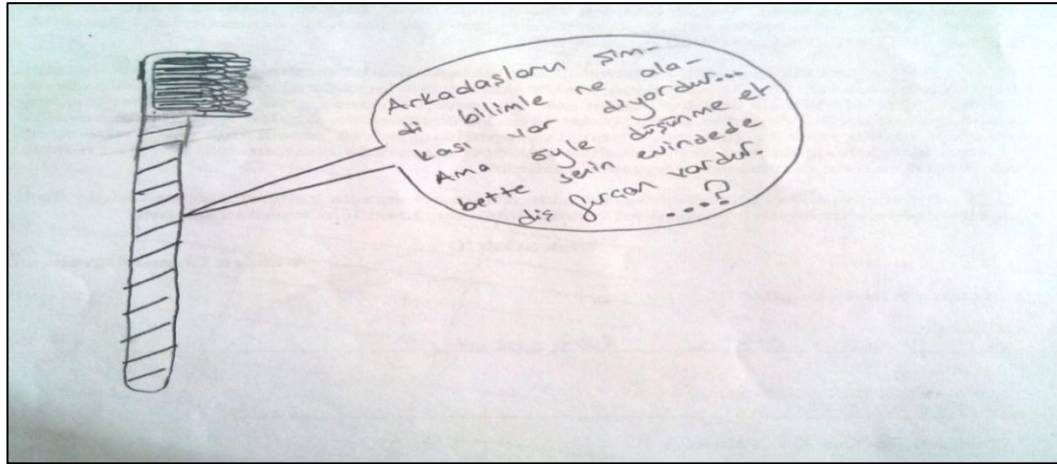 Arkadasların şim-
di bilimle ne ala-
kası var diyordur...
Ama öyle düşünme el
bette senin evindede
diş fırçan vardır.
...?